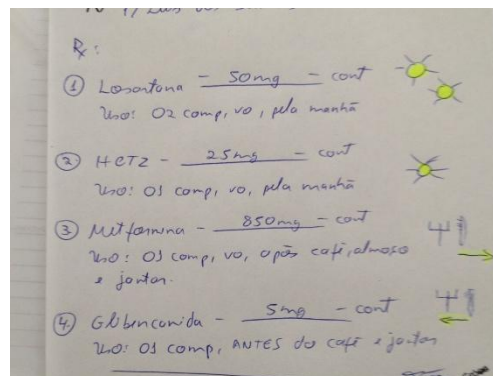 Rx:
① Losartana - 50mg - cont
Uso: 02 comp, vo, pela manhã
② HCTZ - 25mg - cont
Uso: 01 comp, vo, pela manhã
③ Metformina - 850mg - cont
Uso: 01 comp, vo, após café, almoço
e jantar.
④ Glibencamida - 5mg - cont
Uso: 01 comp, ANTES do café e jantar